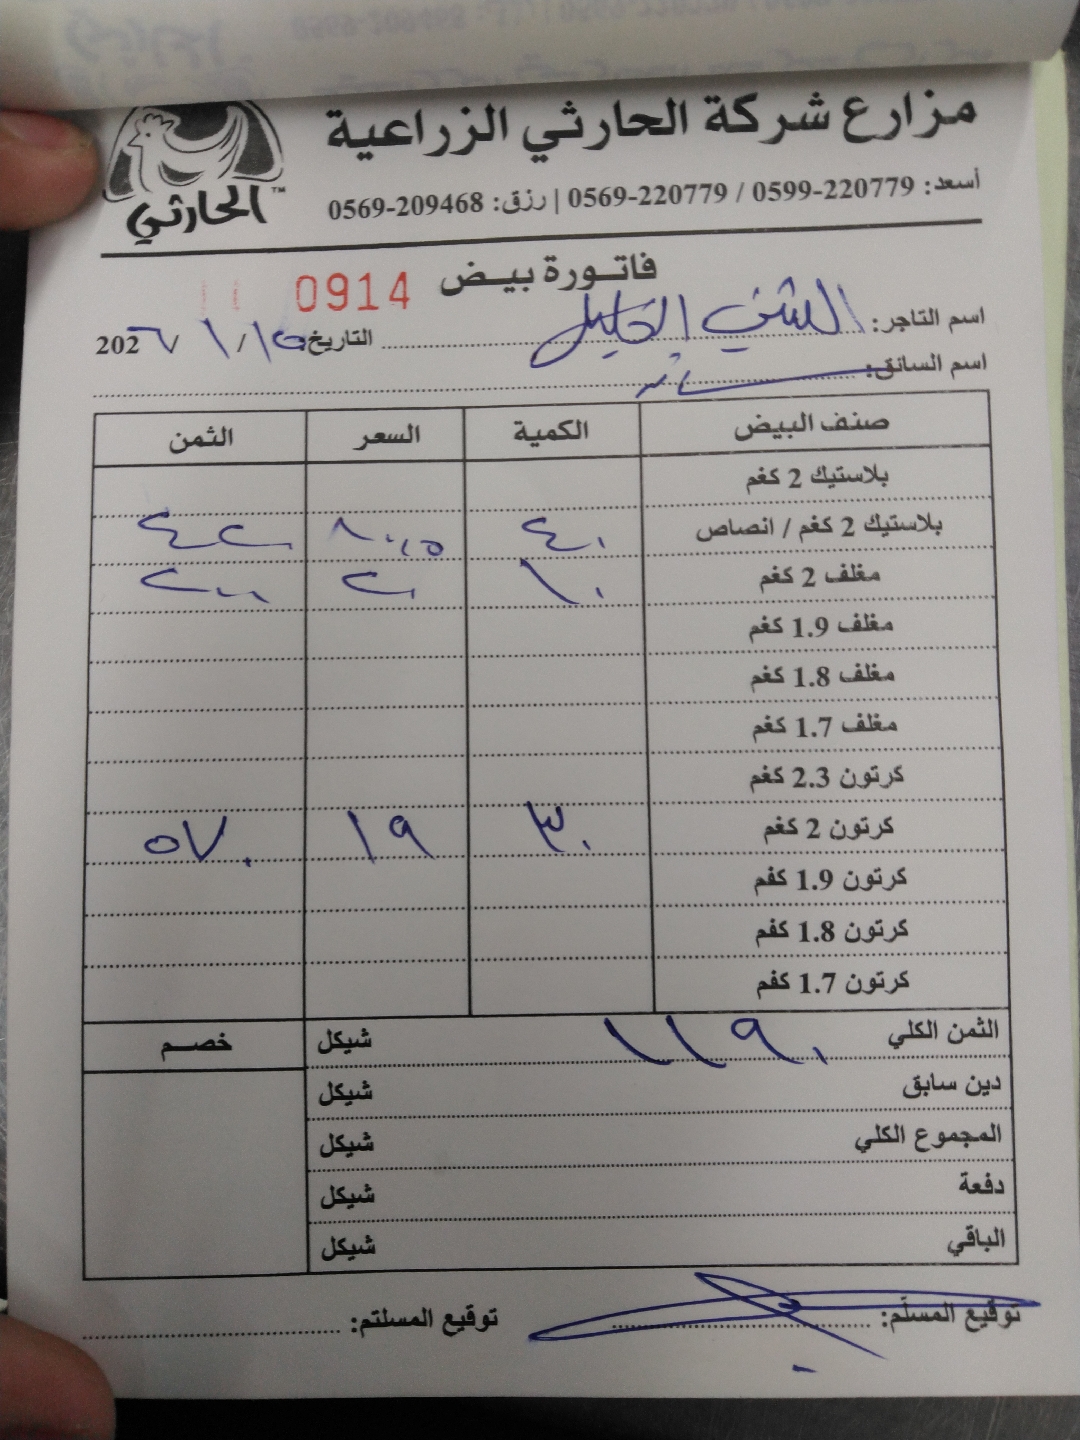 مزارع شركة الحارثي الزراعية
الحارثي™
أسعد: 0599-220779 / 0569-220779 | رزق: 0569-209468
فاتـورة بيـض
0914
اسم التاجر: الخليل
التاريخ: ١٥/١/2026
اسم السائق:
صنف البيض الكمية السعر الثمن
بلاستيك 2 كغم
بلاستيك 2 كغم / انصاص ٤٠ ١٠.٥ ٤٢٠
مغلف 2 كغم ١٠ ٢٠ ٢٠٠
مغلف 1.9 كغم
مغلف 1.8 كغم
مغلف 1.7 كغم
كرتون 2.3 كغم
كرتون 2 كغم ٣٠ ١٩ ٥٧٠
كرتون 1.9 كفم
كرتون 1.8 كفم
كرتون 1.7 كفم
الثمن الكلي ١١٩٠ شيكل خصـم
دين سابق شيكل
المجموع الكلي شيكل
دفعة شيكل
الباقي شيكل
توقيع المسلّم: توقيع المسلتم: